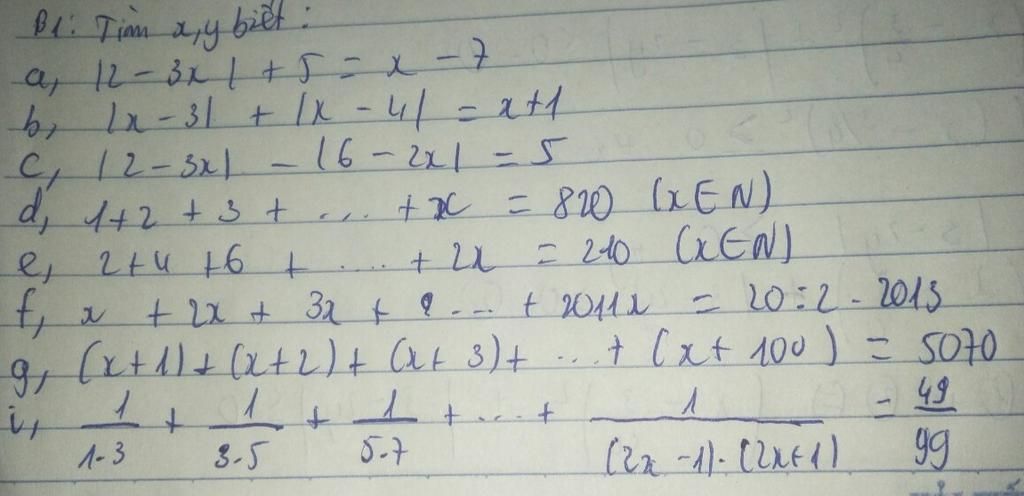 B1: Tìm x, y biết:
a, |2 - 3x| + 5 = x - 7
b, |x - 3| + |x - 4| = x + 1
c, |2 - 3x| - |6 - 2x| = 5
d, 1 + 2 + 3 + .... + x = 820 (x ∈ N)
e, 2 + 4 + 6 + .... + 2x = 210 (x ∈ N)
f, x + 2x + 3x + ... + 2011x = 20 : 2 - 2013
g, (x + 1) + (x + 2) + (x + 3) + ... + (x + 100) = 5070
i, 1/1.3 + 1/3.5 + 1/5.7 + ... + 1/(2x - 1).(2x + 1) = 49/99